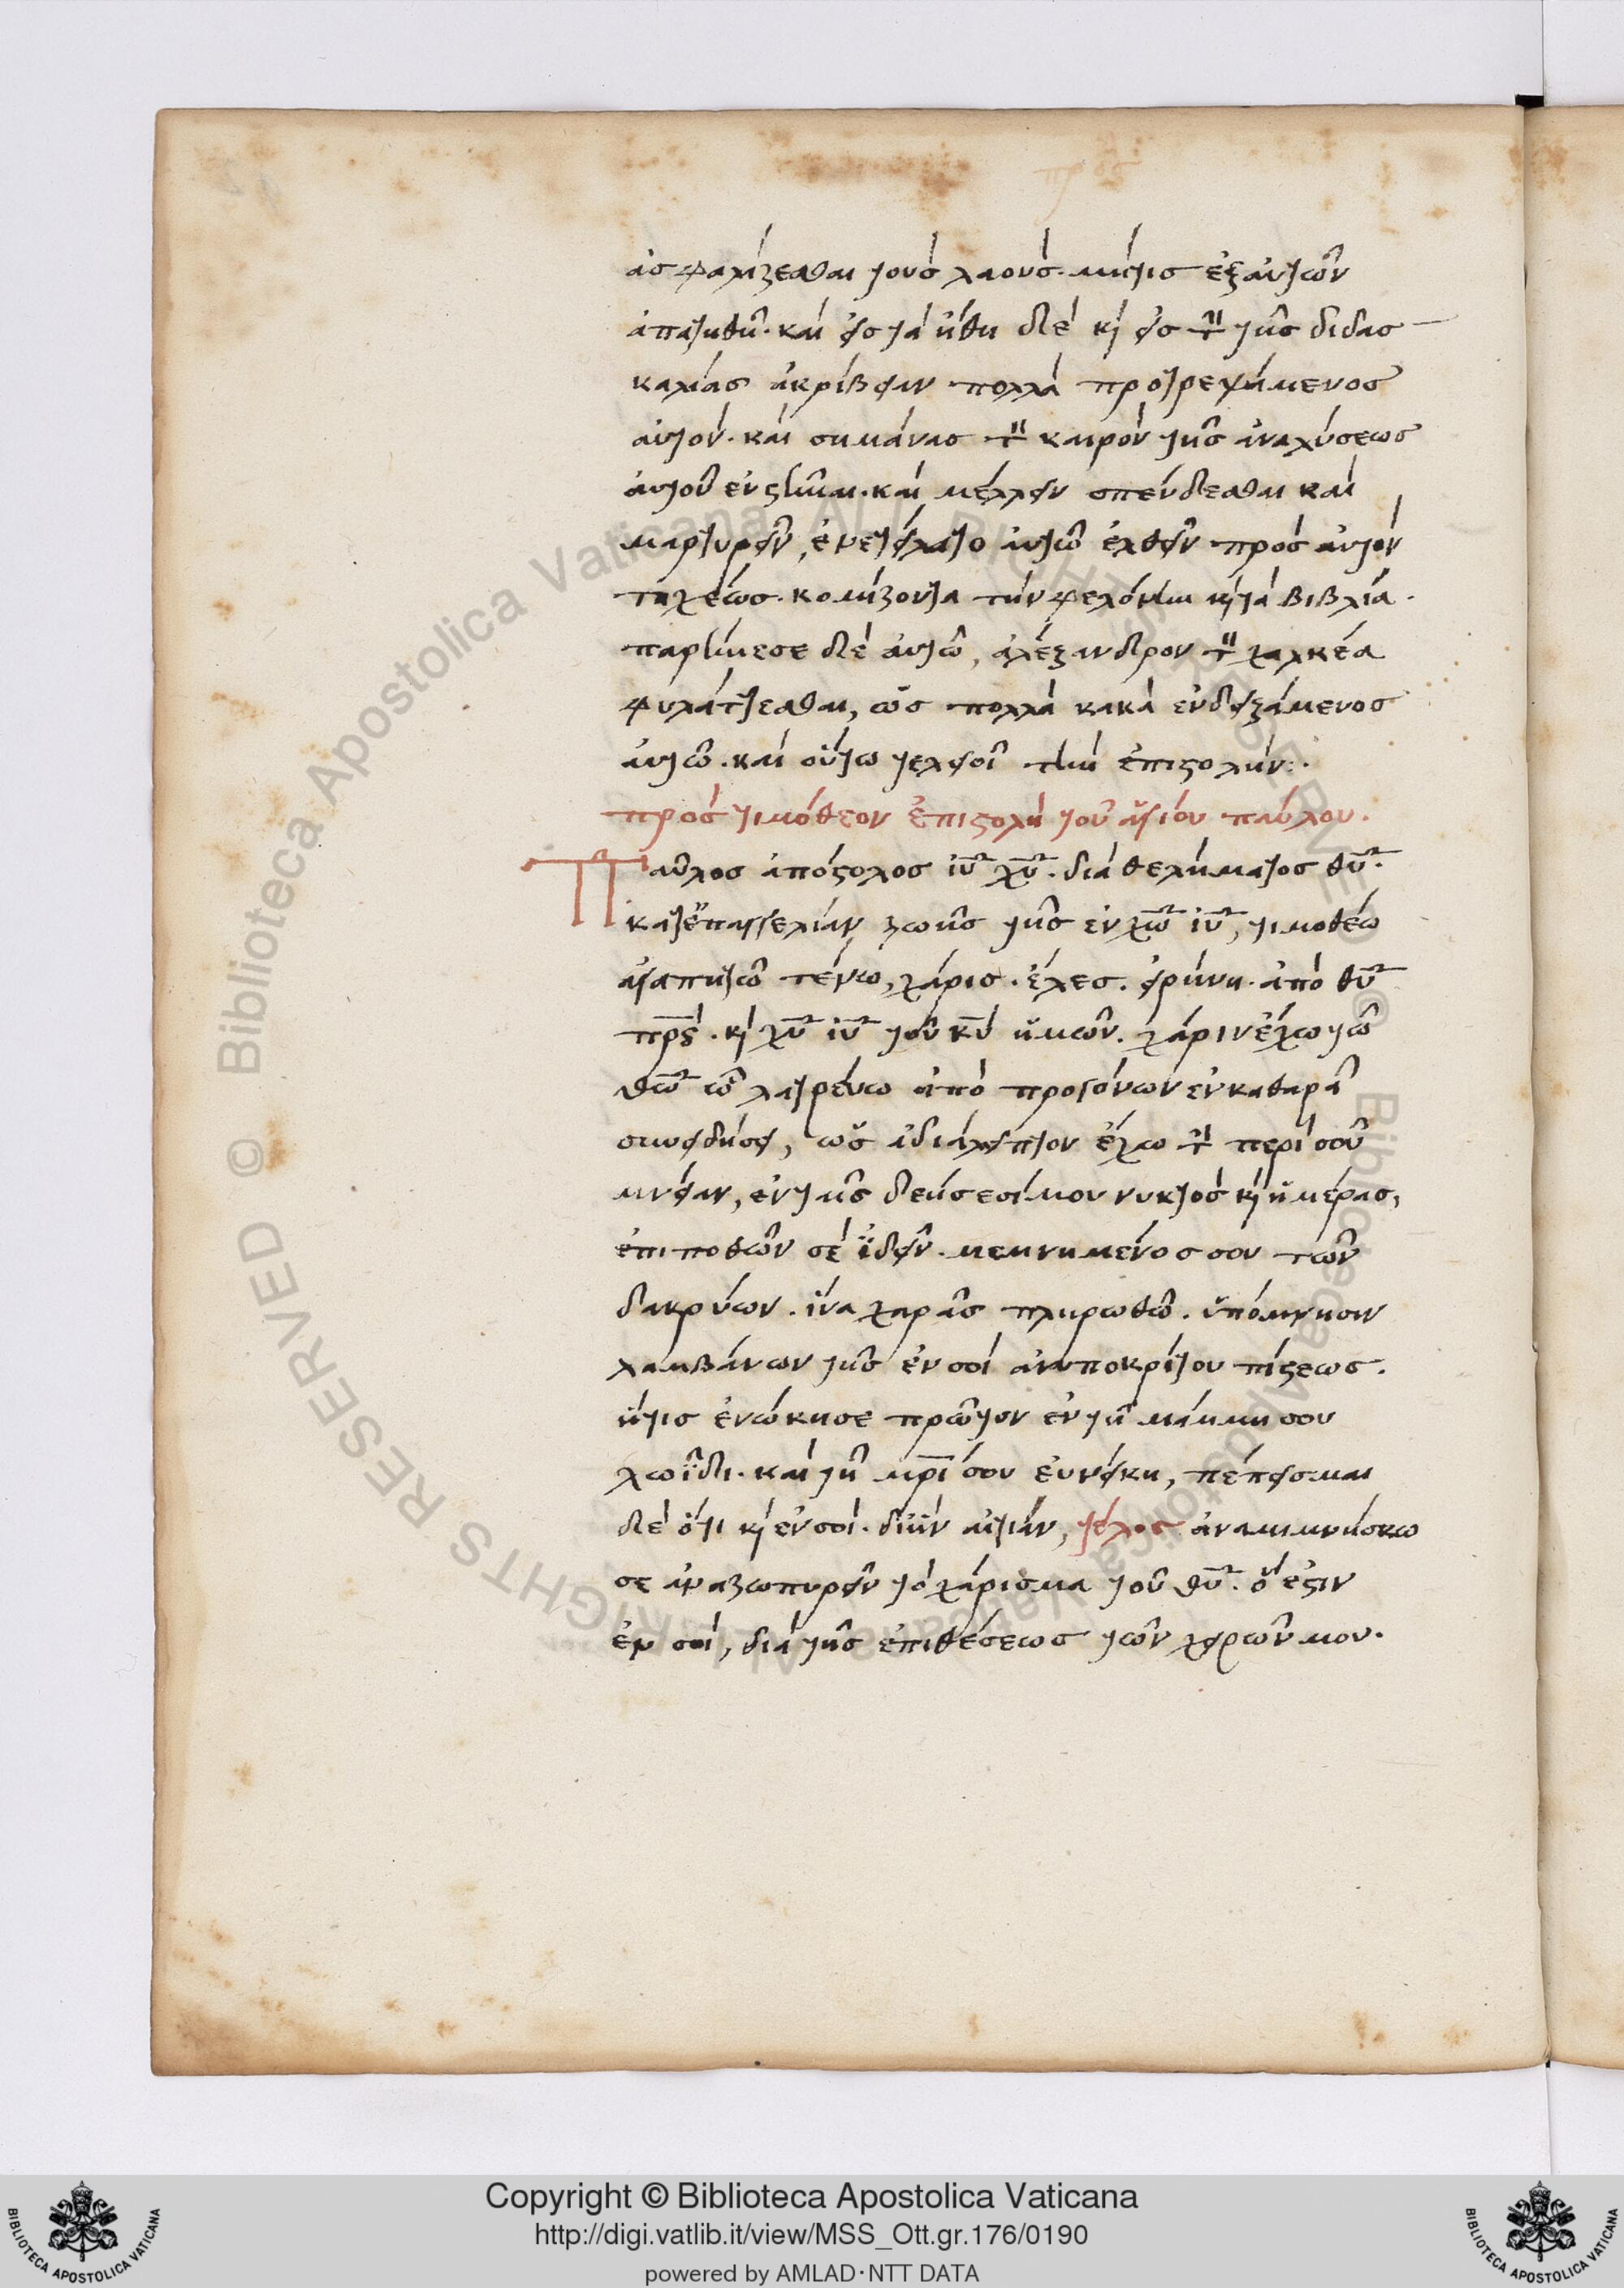 προσ
ἀσφαλίζεσθαι τοὺς λαοὺς. μήτις ἐξαυτῶν
ἀπατηθῆ. καὶ εἰς τὰ ἤθη δὲ κὶ εἰς τὴν τῆς διδασ
καλίας ἀκρίβειαν πολλὰ προτρεψάμενος
αὐτὸν. καὶ σημάνας τὸν καιρὸν τῆς ἀναλύσεως
ἀυτοῦ ἐνστῆναι. καὶ μέλλειν σπένδεσθαι καὶ
μαρτυρεῖν, ἐνετείλατο ἀυτῶ ἐλθεῖν πρὸς ἀυτὸν
ταχέως. κομίζοντα τὴν φελόνην κὶ τὰ βιβλία.
παρήνεσε δὲ ἀυτῶ, ἀλέξανδρον τὸν χαλκέα
φυλάττεσθαι, ὡς πολλὰ κακὰ ἐνδειξάμενος
ἀυτῶ. καὶ οὕτω τελειοῖ τὴν ἐπιστολήν:.
πρὸς τιμόθεον ἐπιστολὴ τοῦ ἁγίου παύλου.
Παῦλος ἀπόστολος ιυ χυ. διὰ θελήματος θυ.
κατἐπαγγελίαν ζωῆς τῆς ἐν χω ιυ, τιμοθέω
ἀγαπητῶ τέκνω, χάρις. ἔλεος. εἰρήνη. ἀπὸ θυ
πρς. κὶ χυ ιυ τοῦ κυ ἡμῶν. χάριν ἔχω τῶ
θω ὧ λατρεύω ἀπὸ προγόνων ἐν καθαρᾶ
συνειδήσει, ὡς ἀδιάλειπτον ἔχω τὴν περὶ σοῦ
μνείαν, ἐν ταῖς δεήσεσί μου νυκτὸς κὶ ἡμέρας,
ἐπιποθῶν σὲ ἰδεῖν. μεμνημένος σου τῶν
δακρύων. ἵνα χαρᾶς πληρωθῶ. ὑπόμνησιν
λαμβάνων τῆς ἐν σοὶ ἀνυποκρίτου πίστεως.
ἥτις ἐνώκησε πρῶτον ἐν τῆ μάμμη σου
λωΐδι. καὶ τῆ μρι σου ἐυνείκη, πέπεισμαι
δὲ ὅτι κὶ ἐν σοὶ. δι' ἣν αἰτίαν, τέλος ἀναμιμνήσκω
σε ἀναζωπυρεῖν τὸ χάρισμα τοῦ θυ. ὅ ἐστιν
ἐν σοὶ, διὰ τῆς ἐπιθέσεως τῶν χειρῶν μου.
Copyright © Biblioteca Apostolica Vaticana
http://digi.vatlib.it/view/MSS_Ott.gr.176/0190
powered by AMLAD·NTT DATA
BIBLIOTECA APOSTOLICA VATICANA
BIBLIOTECA APOSTOLICA VATICANA
© Biblioteca Apostolica Vaticana ALL RIGHTS RESERVED
© Biblioteca Apostolica Vaticana ALL RIGHTS RESERVED